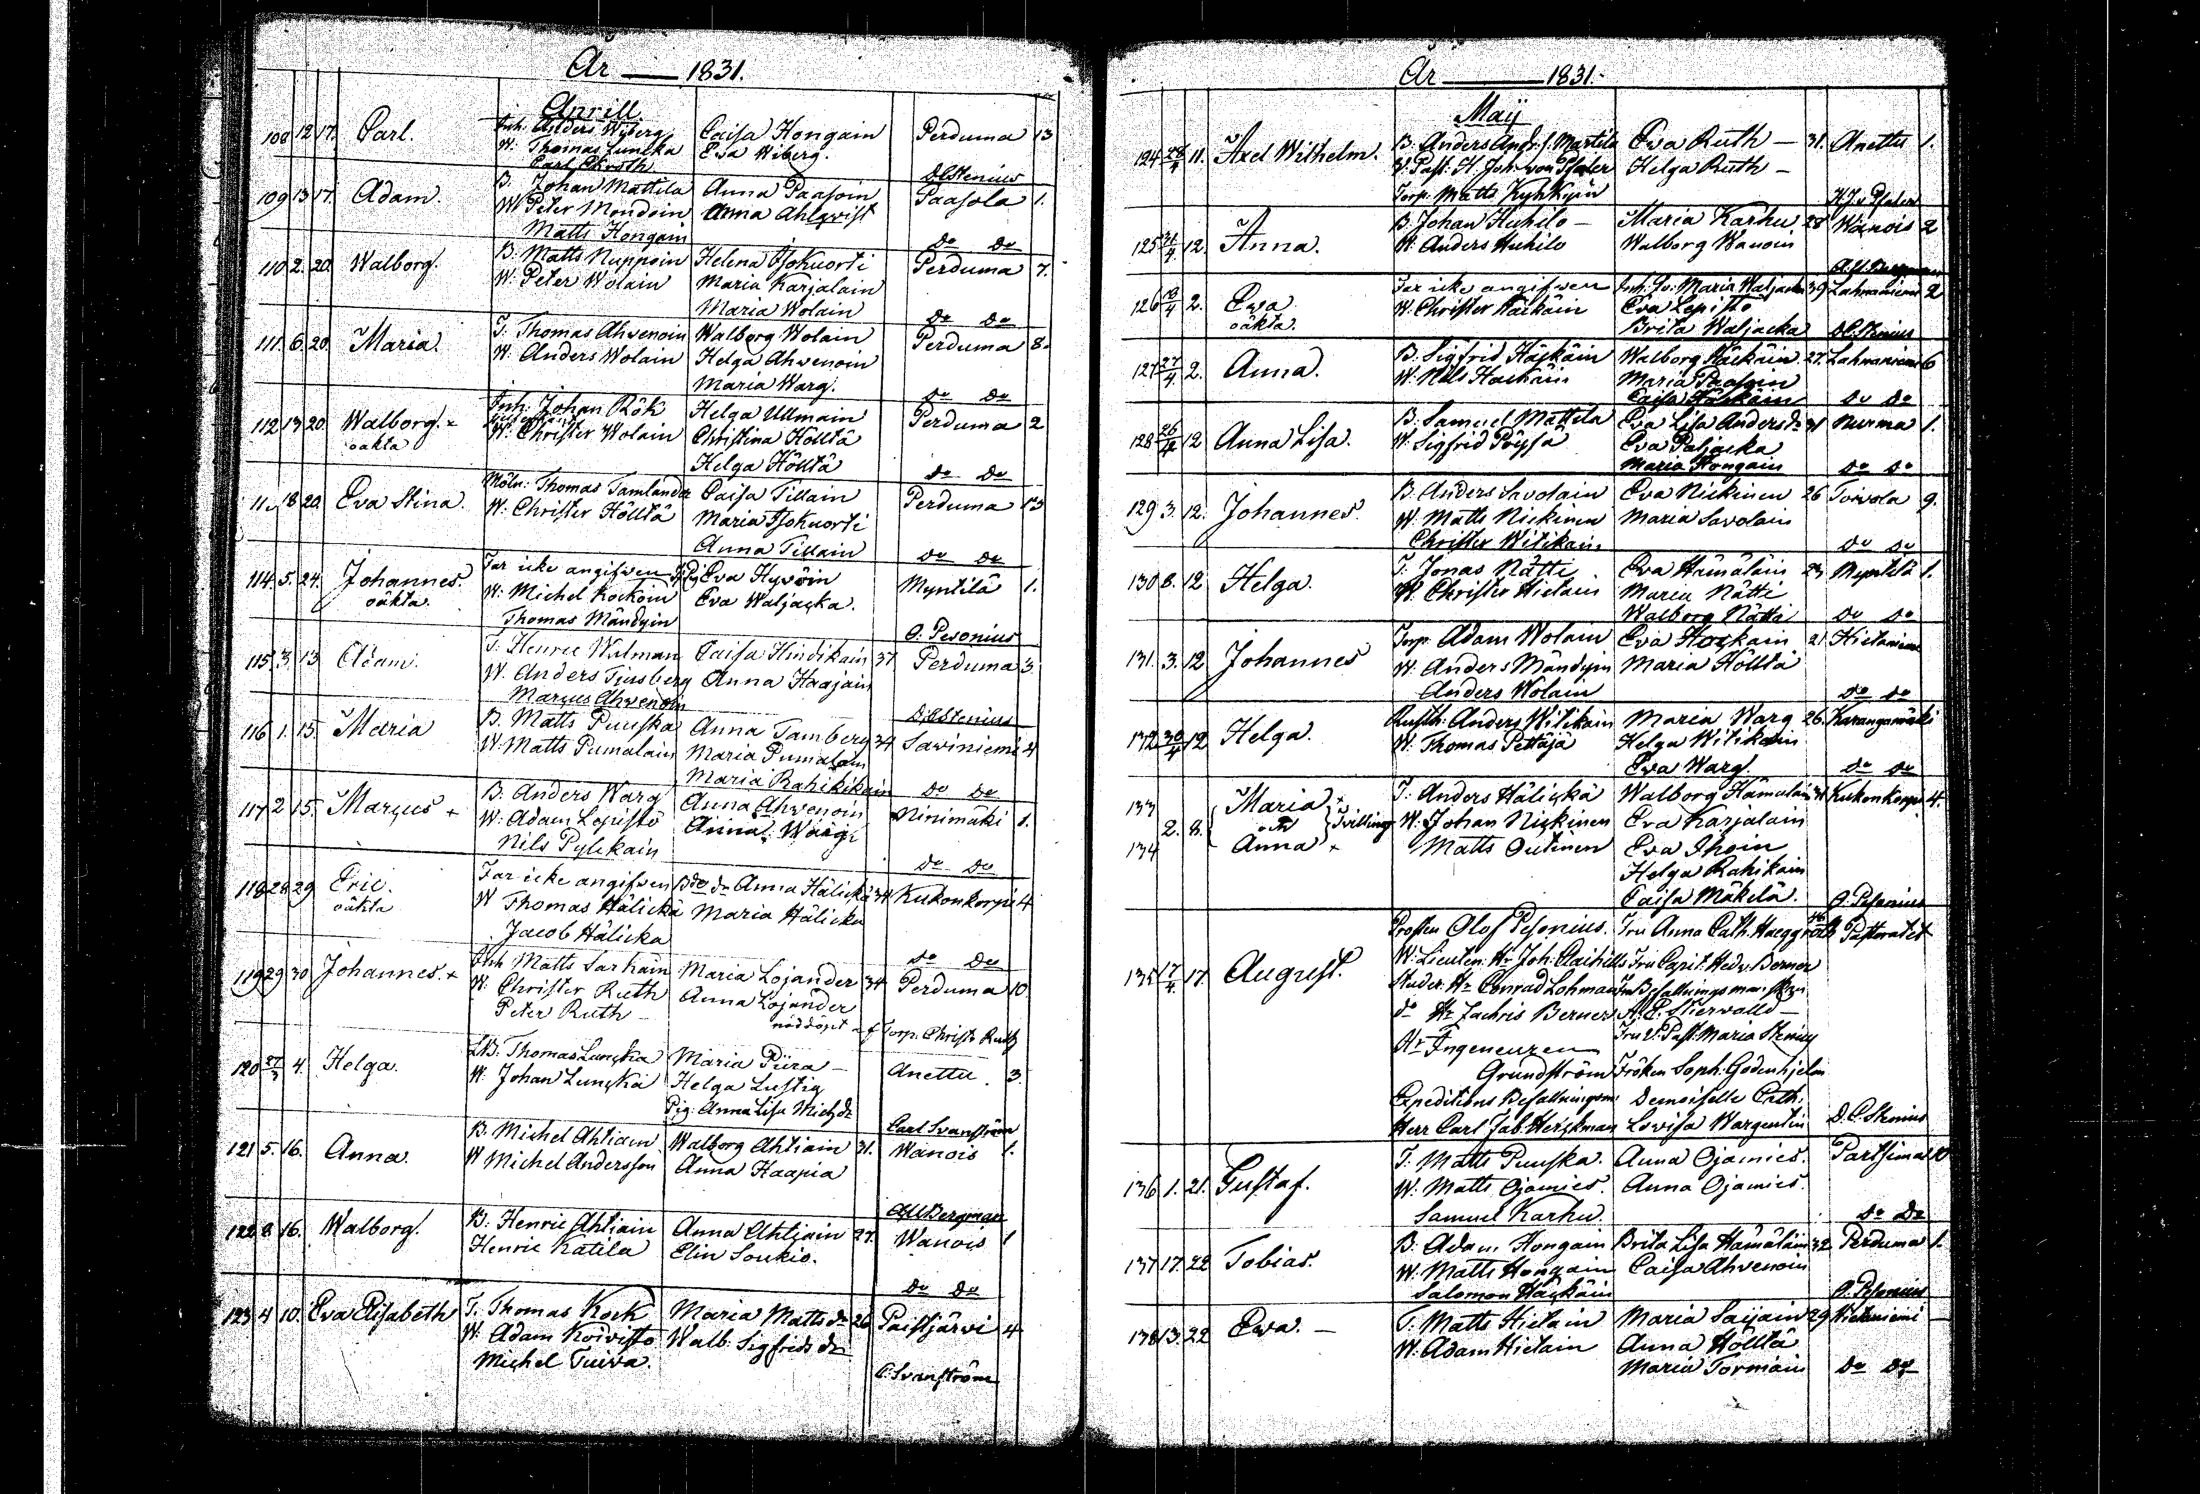 År — 1831.
Aprill.
108 12 17. Carl. Inh: Anders Wiberg Caisa Hongain Perduma 13
W: Thomas Luncka Eva Wiberg.
Carl Ekroth DEStenius
109 13 17. Adam. B. Johan Mattila Anna Paasoin Paasola 1.
W Peter Mondoin Anna Ahlqvist
Matts Hongain Do Do
110 2. 20. Walborg. B. Matts Nuppoin Helena Jokuorti Perduma 7.
W. Peter Wolain Maria Karjalain
Maria Wolain Do Do
111. 6. 20. Maria. T. Thomas Ahvenoin Walborg Wolain Perduma 8.
W. Anders Wolain Helga Ahvenoin
Maria Warg. Do Do
112 13 20. Walborg. Inh: Johan Rök Helga Ullmain Perduma 2
oäkta W. Christer Wolain Christina Hölltä
Helga Hölltä Do Do
18 20. Eva Stina. Möln: Thomas Tamlander Caisa Tillain Perduma 13
W. Christer Hölltä Maria Jokuorti
Anna Tillain Do Do
114. 5. 24. Johannes. Far icke angifven Eva Hyvöin Myntilä 1.
oäkta. W. Michel Kockoin Eva Waljacka.
Thomas Mändyin O. Pesonius
115. 3. 13. Adam. T. Henric Wilman Caisa Hindikain 37 Perduma 3.
W. Anders Tinsberg Anna Haajain
Marcus Ahvenoin DEStenius
116 1. 15. Maria B. Matts Puuska Anna Tamberg 34 Saviniemi 4
W. Matts Pumalain Maria Pumalain
Maria Rahikikain Do Do
117 2 15. Marcus + B. Anders Warg Anna Ahvenoin Ninimäki 1.
W. Adam Lepistö Anna Warg
Nils Pylckain Do Do
118 28 29 Eric. Far icke angifven Anna Hälickä 34 Kukonkorpi 4
oäkta W Thomas Hälickä Maria Hälickä
Jacob Hälicka Do Do
119 29 30 Johannes. + Inh Matts Sarkäin Maria Lojander 34 Perduma 10
W. Christer Ruth Anna Lojander
Peter Ruth nöddöpt af Torp. Christ. Ruth
120 27/3 4. Helga. LB. Thomas Luncka Maria Piira Anettu. 3.
W. Johan Luncka Helga Lustig
Pig. Anna Lisa Michdr Carl Svanström
121 5. 16. Anna. B. Michel Ahtiain Walborg Ahtiain 31. Wanois 1.
W Michel Andersson Anna Haapia
AUBergman
122 8 16. Walborg. B. Henric Ahtiain Anna Ahtiain 27. Wanois 1
Henric Katila Elin Soukio.
Do Do
123 4 10. Eva Elisabeth T. Thomas Kock Maria Matts dr 26 Paistjärvi 4
W. Adam Koivisto Walb. Sigfreds dr
Michel Tuiva. C. Svanström
År — 1831.
Maij
124 28/4 11. Axel Wilhelm. B. Anders Andr. s. Martila Eva Ruth — 31. Anettu 1.
V. Past. H. Joh. von Pfaler Helga Ruth —
Torp. Matts Kyhkyin H.J.v. Pfaler
125 21/4 12. Anna. B. Johan Huhilo — Maria Karhu 28 Wanois 2
W. Anders Huhilo Walborg Wanoin
A.U. Bergman
126 18/4 2. Ewa Far icke angifven Maria Waljacka 39 Lahnaniemi 2
oäkta. W. Christer Häckäin Eva Lepistö
Brita Waljacka D.E. Stenius
127 27/4 2. Anna. B. Sigfrid Häckäin Walborg Häckäin 27. Lahnaniemi 6
W. Nils Häckäin Maria Paasoin
Caisa Häckäin Do Do
128 26/4 12 Anna Lisa. B. Samuel Mattila Eva Lisa Andersdr 31 Nurma 1.
W. Sigfrid Pöysa Eva Paljacka
Maria Hongain Do Do
129 3. 12. Johannes. B. Anders Savolain Eva Nickinen 26 Toivola 9.
W. Matts Nickinen Maria Savolain
Christer Witikain Do Do
130 8. 12 Helga. T. Jonas Nätti Eva Hämäläin 23 Myntilä 1.
W. Christer Hietain Maria Nätti
Walborg Nätti Do Do
131. 3. 12 Johannes Torp. Adam Wolain Eva Hockain 21. Hietaniemi
W. Anders Mändyin Maria Hölltä
Anders Wolain Do Do
132 30/4 12 Helga. Rusth. Anders Witikain Maria Warg 26. Karangomäki
W. Thomas Pettäjä Helga Witikain
Eva Warg. Do Do
133 Maria + T. Anders Hälickä Walborg Hämäläin 31 Kukonkorpi 4.
2. 8. och Tvilling W. Johan Nickinen Eva Karjalain
134 Anna + Matts Outinen Eva Ihoin
Helga Rahikain
Caisa Mäkelä. O. Pesonius
Prosten Olof Pesonius. Fru Anna Cath. Haeggroth Pastoratet
135 17/4 17. August. W. Lieuten. Hr Joh. Claihills Fru Capit. Hedv. Berner
Studer. Hr Conrad Lohman Fru Befallningsmanskan
do Hr Zachris Berner A. C. Stierwalld —
Hr Ingeneuren Fru V. Past. Maria Stenius
Grundström Fröken Soph. Godenhjelm
Expeditions Befallningsm. Demoiselle Cath.
Herr Carl Fab. Herckman Lovisa Wargentin D. E. Stenius
136 1. 21. Gustaf. T. Matts Puuska. Anna Ojamies. Partsima 10
W. Matts Ojamies. Anna Ojamies.
Samuel Karhu. Do Do
137 17. 22 Tobias. B. Adam Hongain Brita Lisa Hämäläin 32 Perduma 1.
W. Matts Hongain Caisa Ahvenoin
Salomon Häckäin O. Pesonius
138 13. 22 Ewa. — T. Matts Hietain Maria Saijain 29 Hietaniemi —
W. Adam Hietain Anna Hölltä
Maria Tormäin Do Do